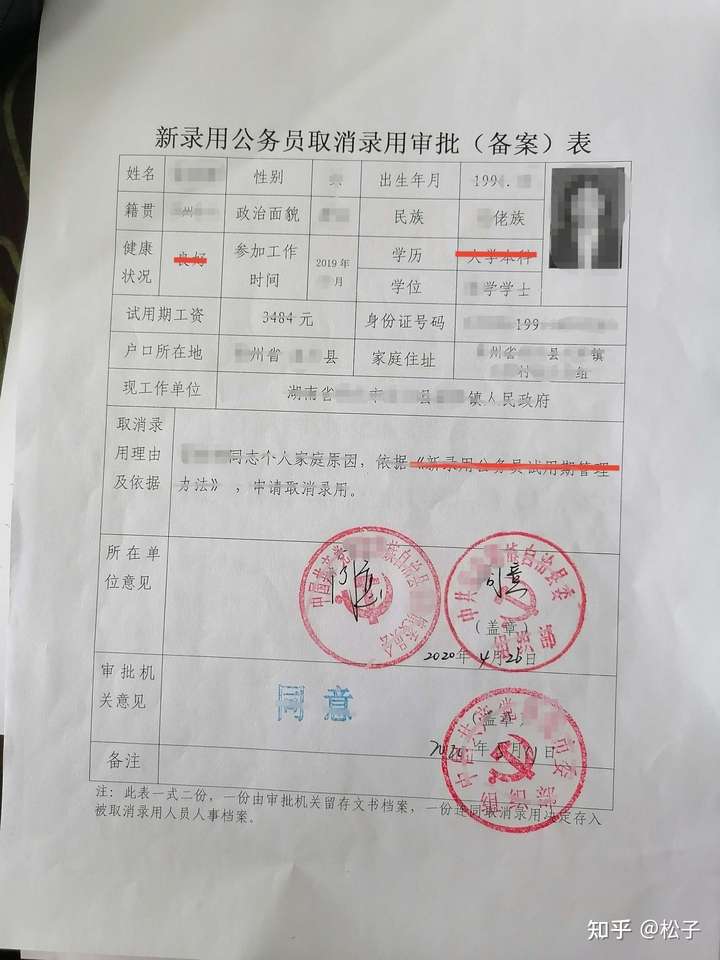 新录用公务员取消录用审批（备案）表
姓名 性别 出生年月 199
籍贯 州 政治面貌 民族 佬族
健康状况 良好 参加工作时间 2019年 月 学历 大学本科
学位 学学士
试用期工资 3484元 身份证号码 199
户口所在地 州省 县 家庭住址 州省 县 镇
村 组
现工作单位 湖南省 市 县 镇人民政府
取消录用理由及依据
同志个人家庭原因，依据《新录用公务员试用期管理
办法》，申请取消录用。
所在单位意见
同意
（盖章）
2020年4月26日
审批机关意见
同意
（盖章）
2020年5月11日
备注
注：此表一式二份，一份由审批机关留存文书档案，一份连同取消录用决定存入
被取消录用人员人事档案。
知乎 @松子